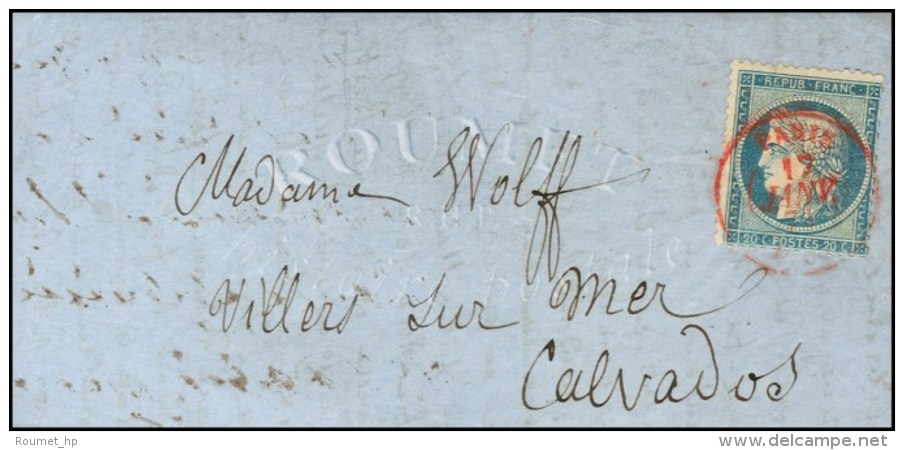 REPUB·FRANC
PARIS
17
JANV
20 C POSTES 20 C
ROUMET
Madame Wolff
Villers sur mer
Calvados
Roumet_hp
delcampe.net